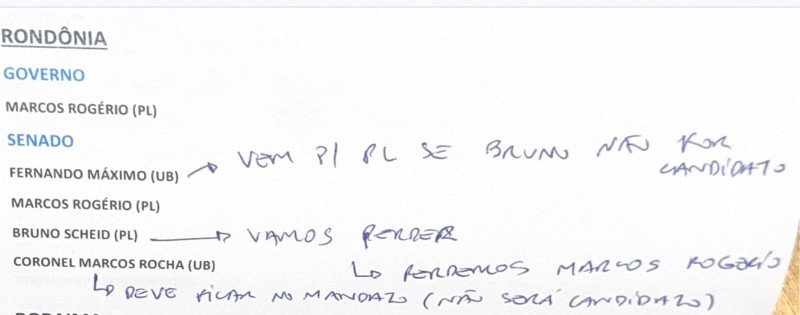 RONDÔNIA
GOVERNO
MARCOS ROGÉRIO (PL)
SENADO
FERNANDO MÁXIMO (UB) → VEM P/ PL SE BRUNO NÃO FOR
CANDIDATO
MARCOS ROGÉRIO (PL)
BRUNO SCHEID (PL) → VAMOS PERDER
CORONEL MARCOS ROCHA (UB) ↳ PERDEMOS MARCOS ROGÉRIO
↳ DEVE FICAR NO MANDATO (NÃO SERÁ CANDIDATO)